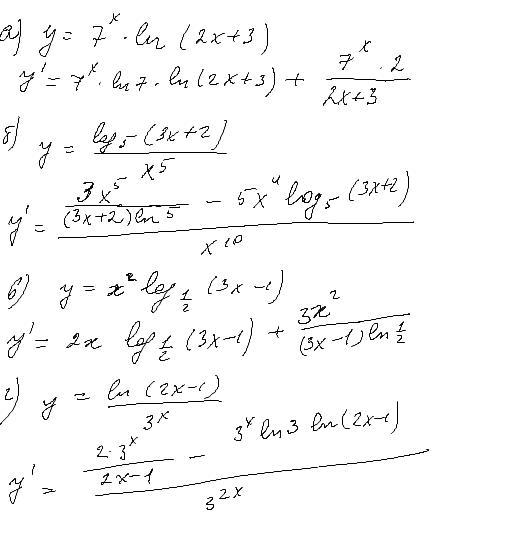 а) y = 7^x · ln (2x+3)
y' = 7^x · ln 7 · ln (2x+3) + (7^x · 2)/(2x+3)
б) y = (log_5 (3x+2))/(x^5)
y' = ((3x^5)/((3x+2) ln 5) - 5x^4 log_5 (3x+2))/(x^10)
в) y = x^2 log_(1/2) (3x-1)
y' = 2x log_(1/2) (3x-1) + (3x^2)/((3x-1) ln 1/2)
г) y = (ln (2x-1))/(3^x)
y' = ((2·3^x)/(2x-1) - 3^x ln 3 ln (2x-1))/(3^(2x))